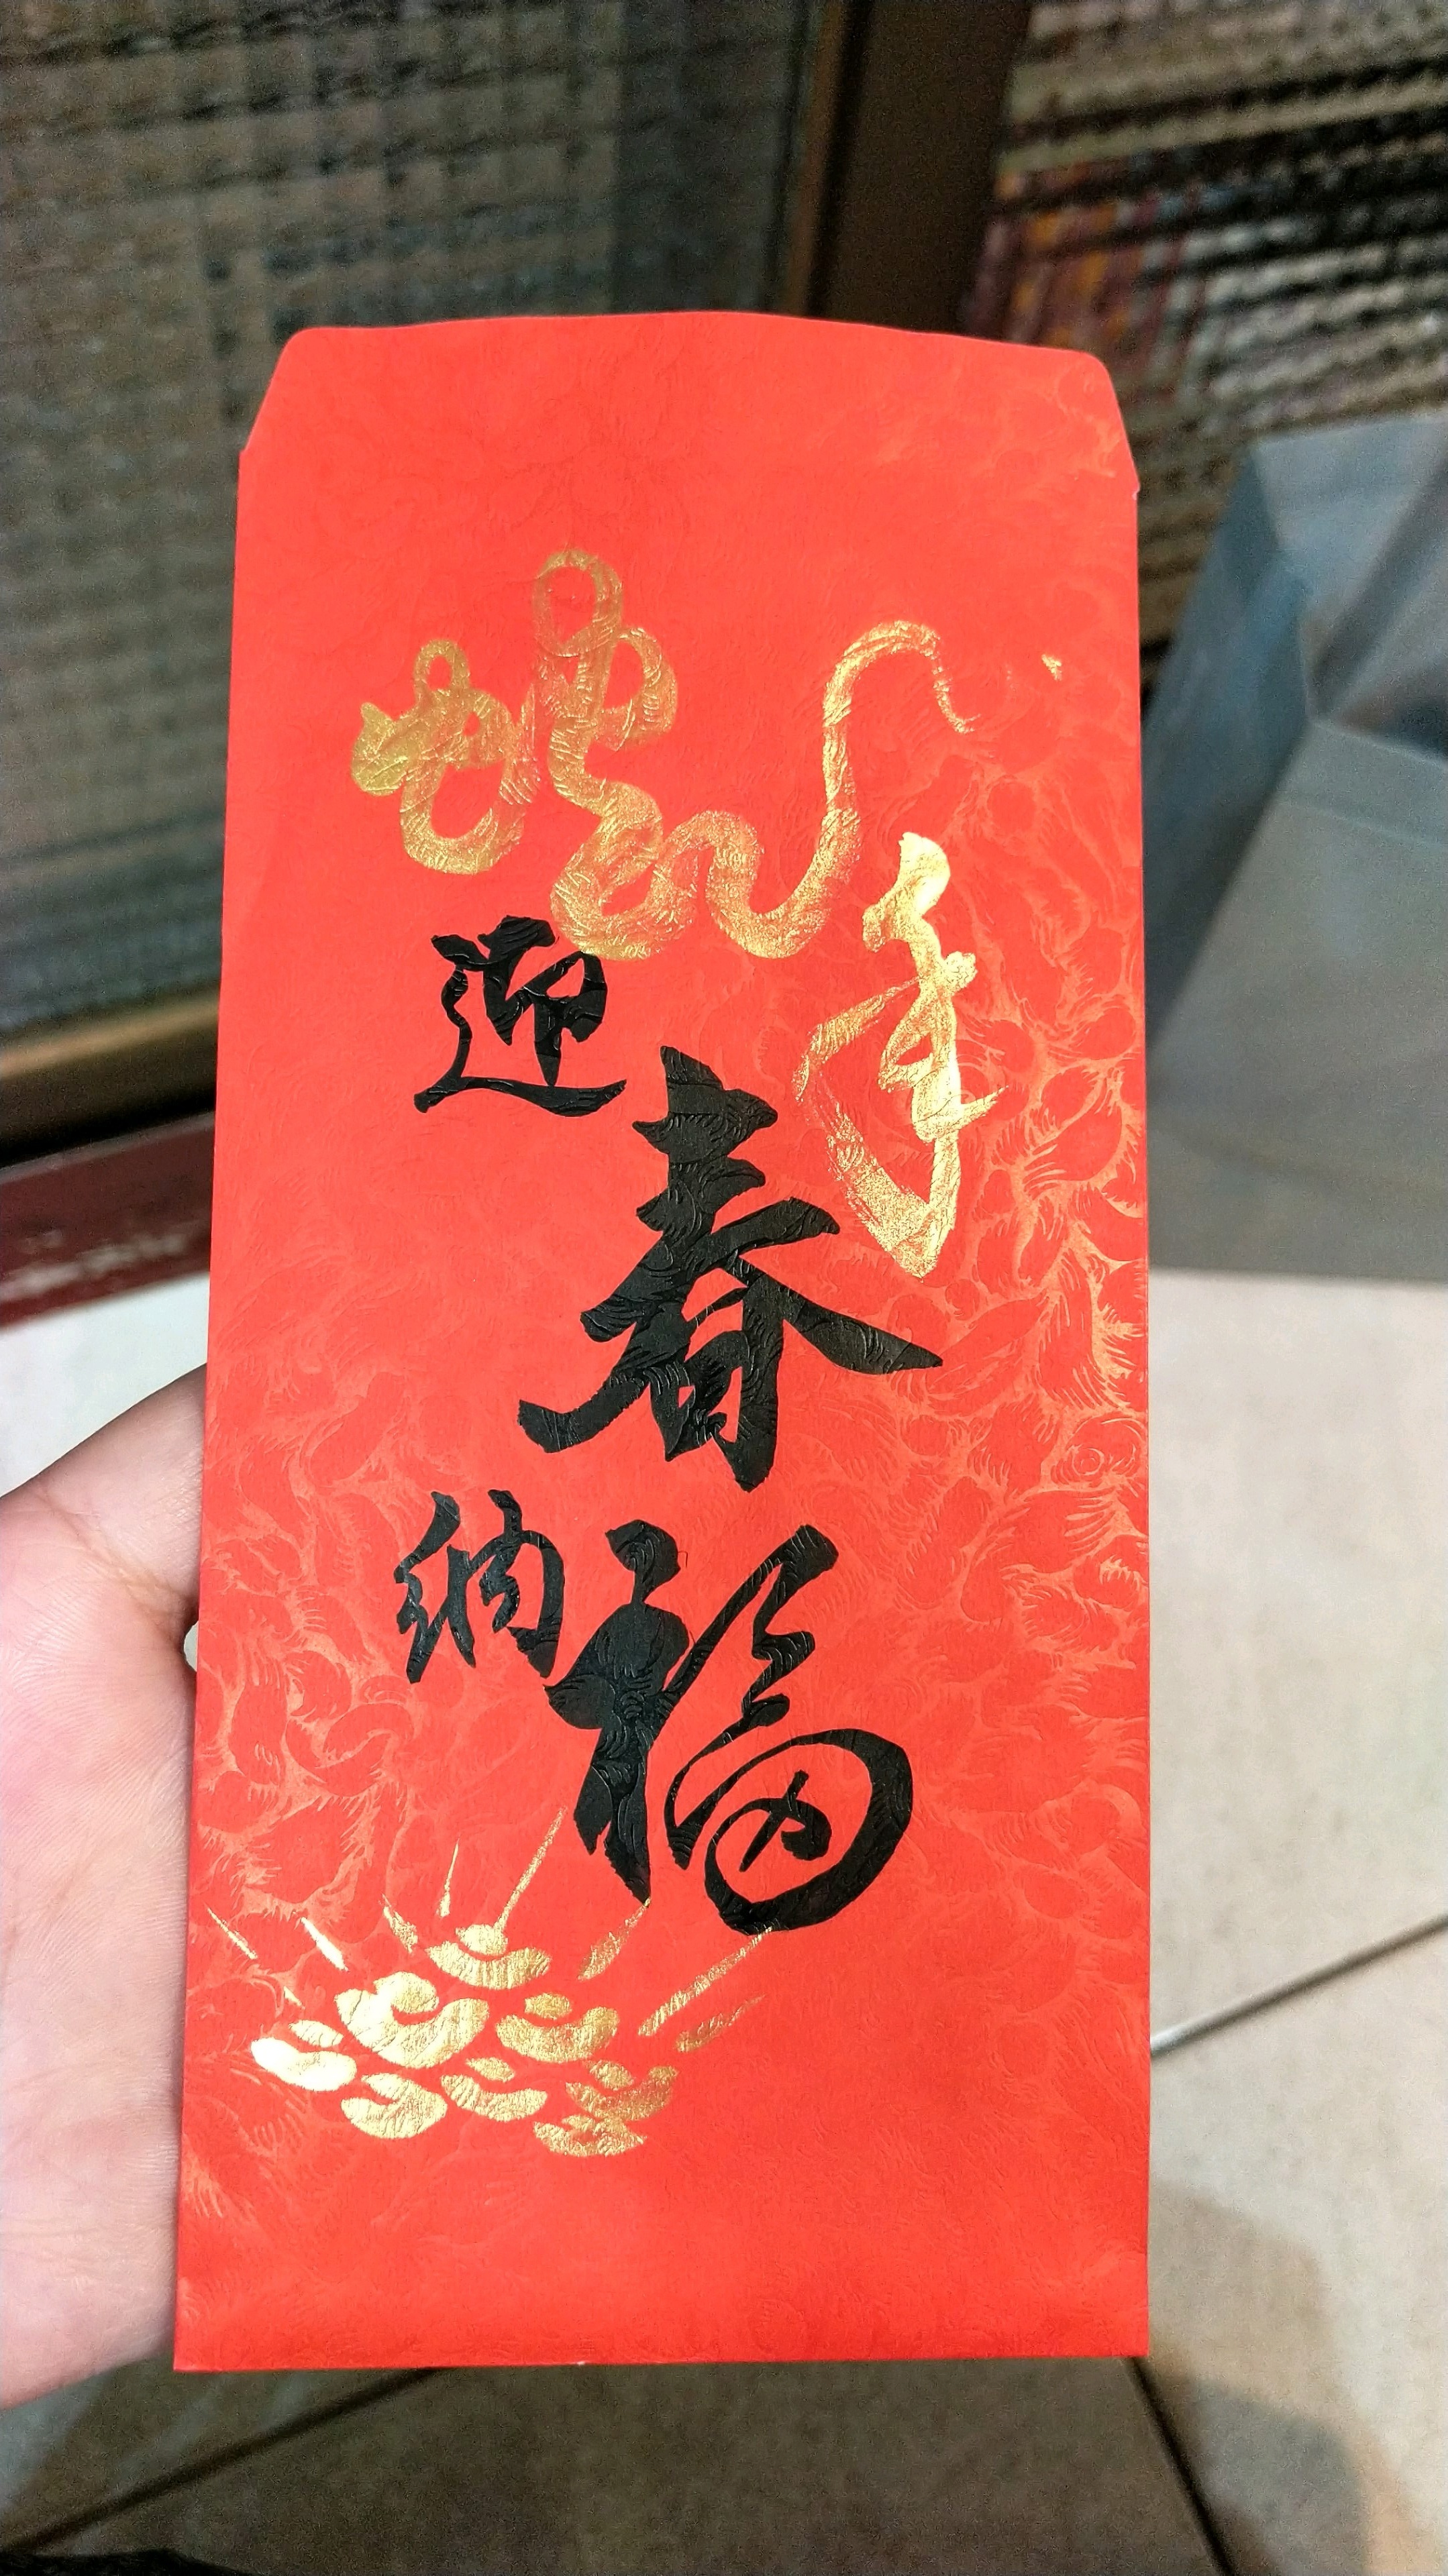 蛇年
迎春
納福